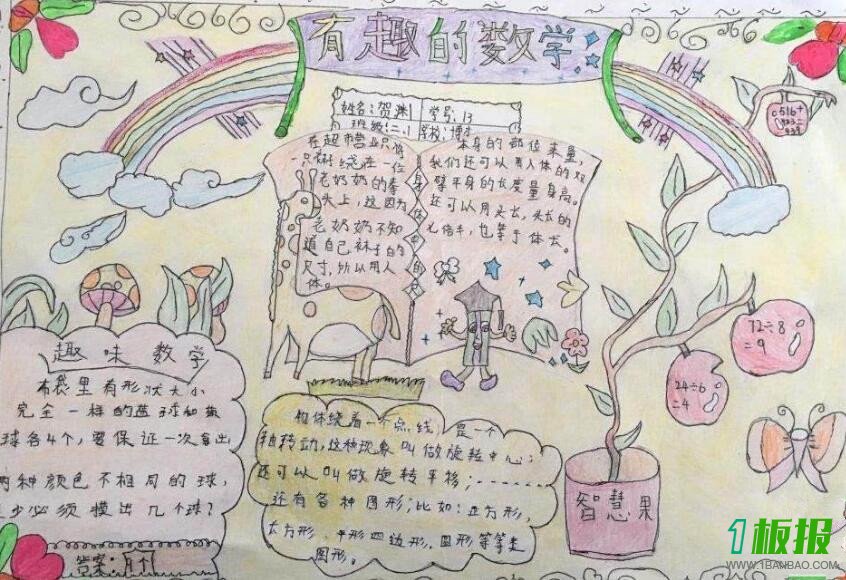 有趣的数学
姓名:贺渊 学号:13
班级:二.1 学校:博才
在超市里只将
一只袜绕在一位
老奶奶的拳
头上,这因为
老奶奶不知
道自己袜子的
尺寸,所以用人
体。
身体中的尺
本身的部位来量,
我们还可以用人体的双
臂平身的长度量身高。
还可以用头长,头长的
七倍半,也等于体长。
516+
423=
939
72÷8
=9
24÷6
=4
智慧果
趣味数学
布袋里有形状大小
完全一样的蓝球和黄
球各4个,要保证一次拿出
两种颜色不相同的球,
至少必须摸出几个球?
答案:
物体绕着一个点线,是一个
轴转动,这种现象叫做旋转中心;
还可以叫做旋转平移;------
还有各种图形;比如:正方形,
长方形,平形四边形,圆形等等是
图形。
1板报
WWW.1BANBAO.COM